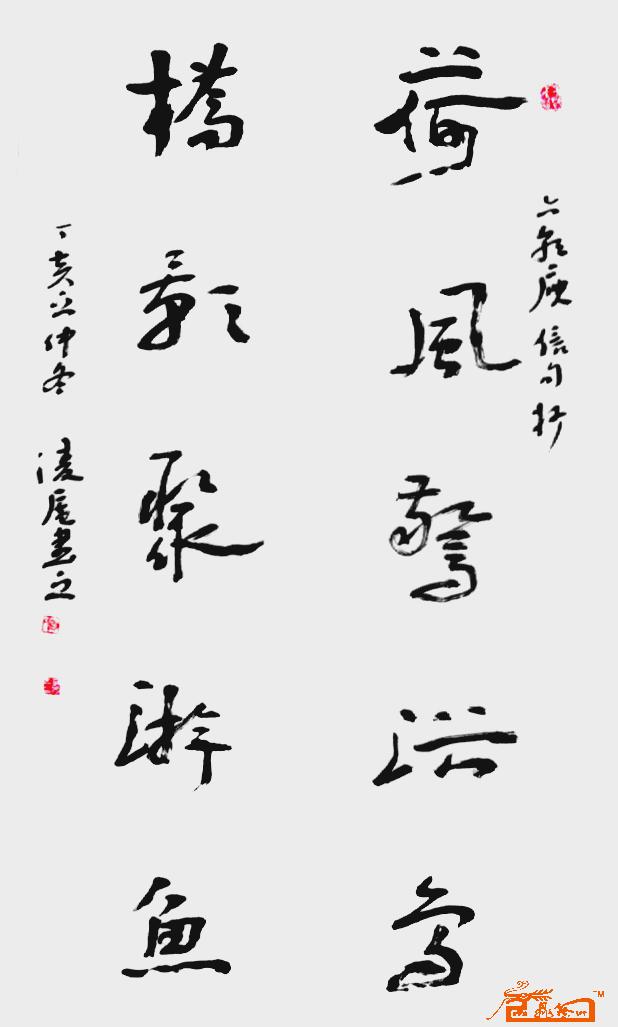 六朝庾信句抄
荷風驚浴鳥
橋影聚游魚
丁亥之仲冬
凌雁書之